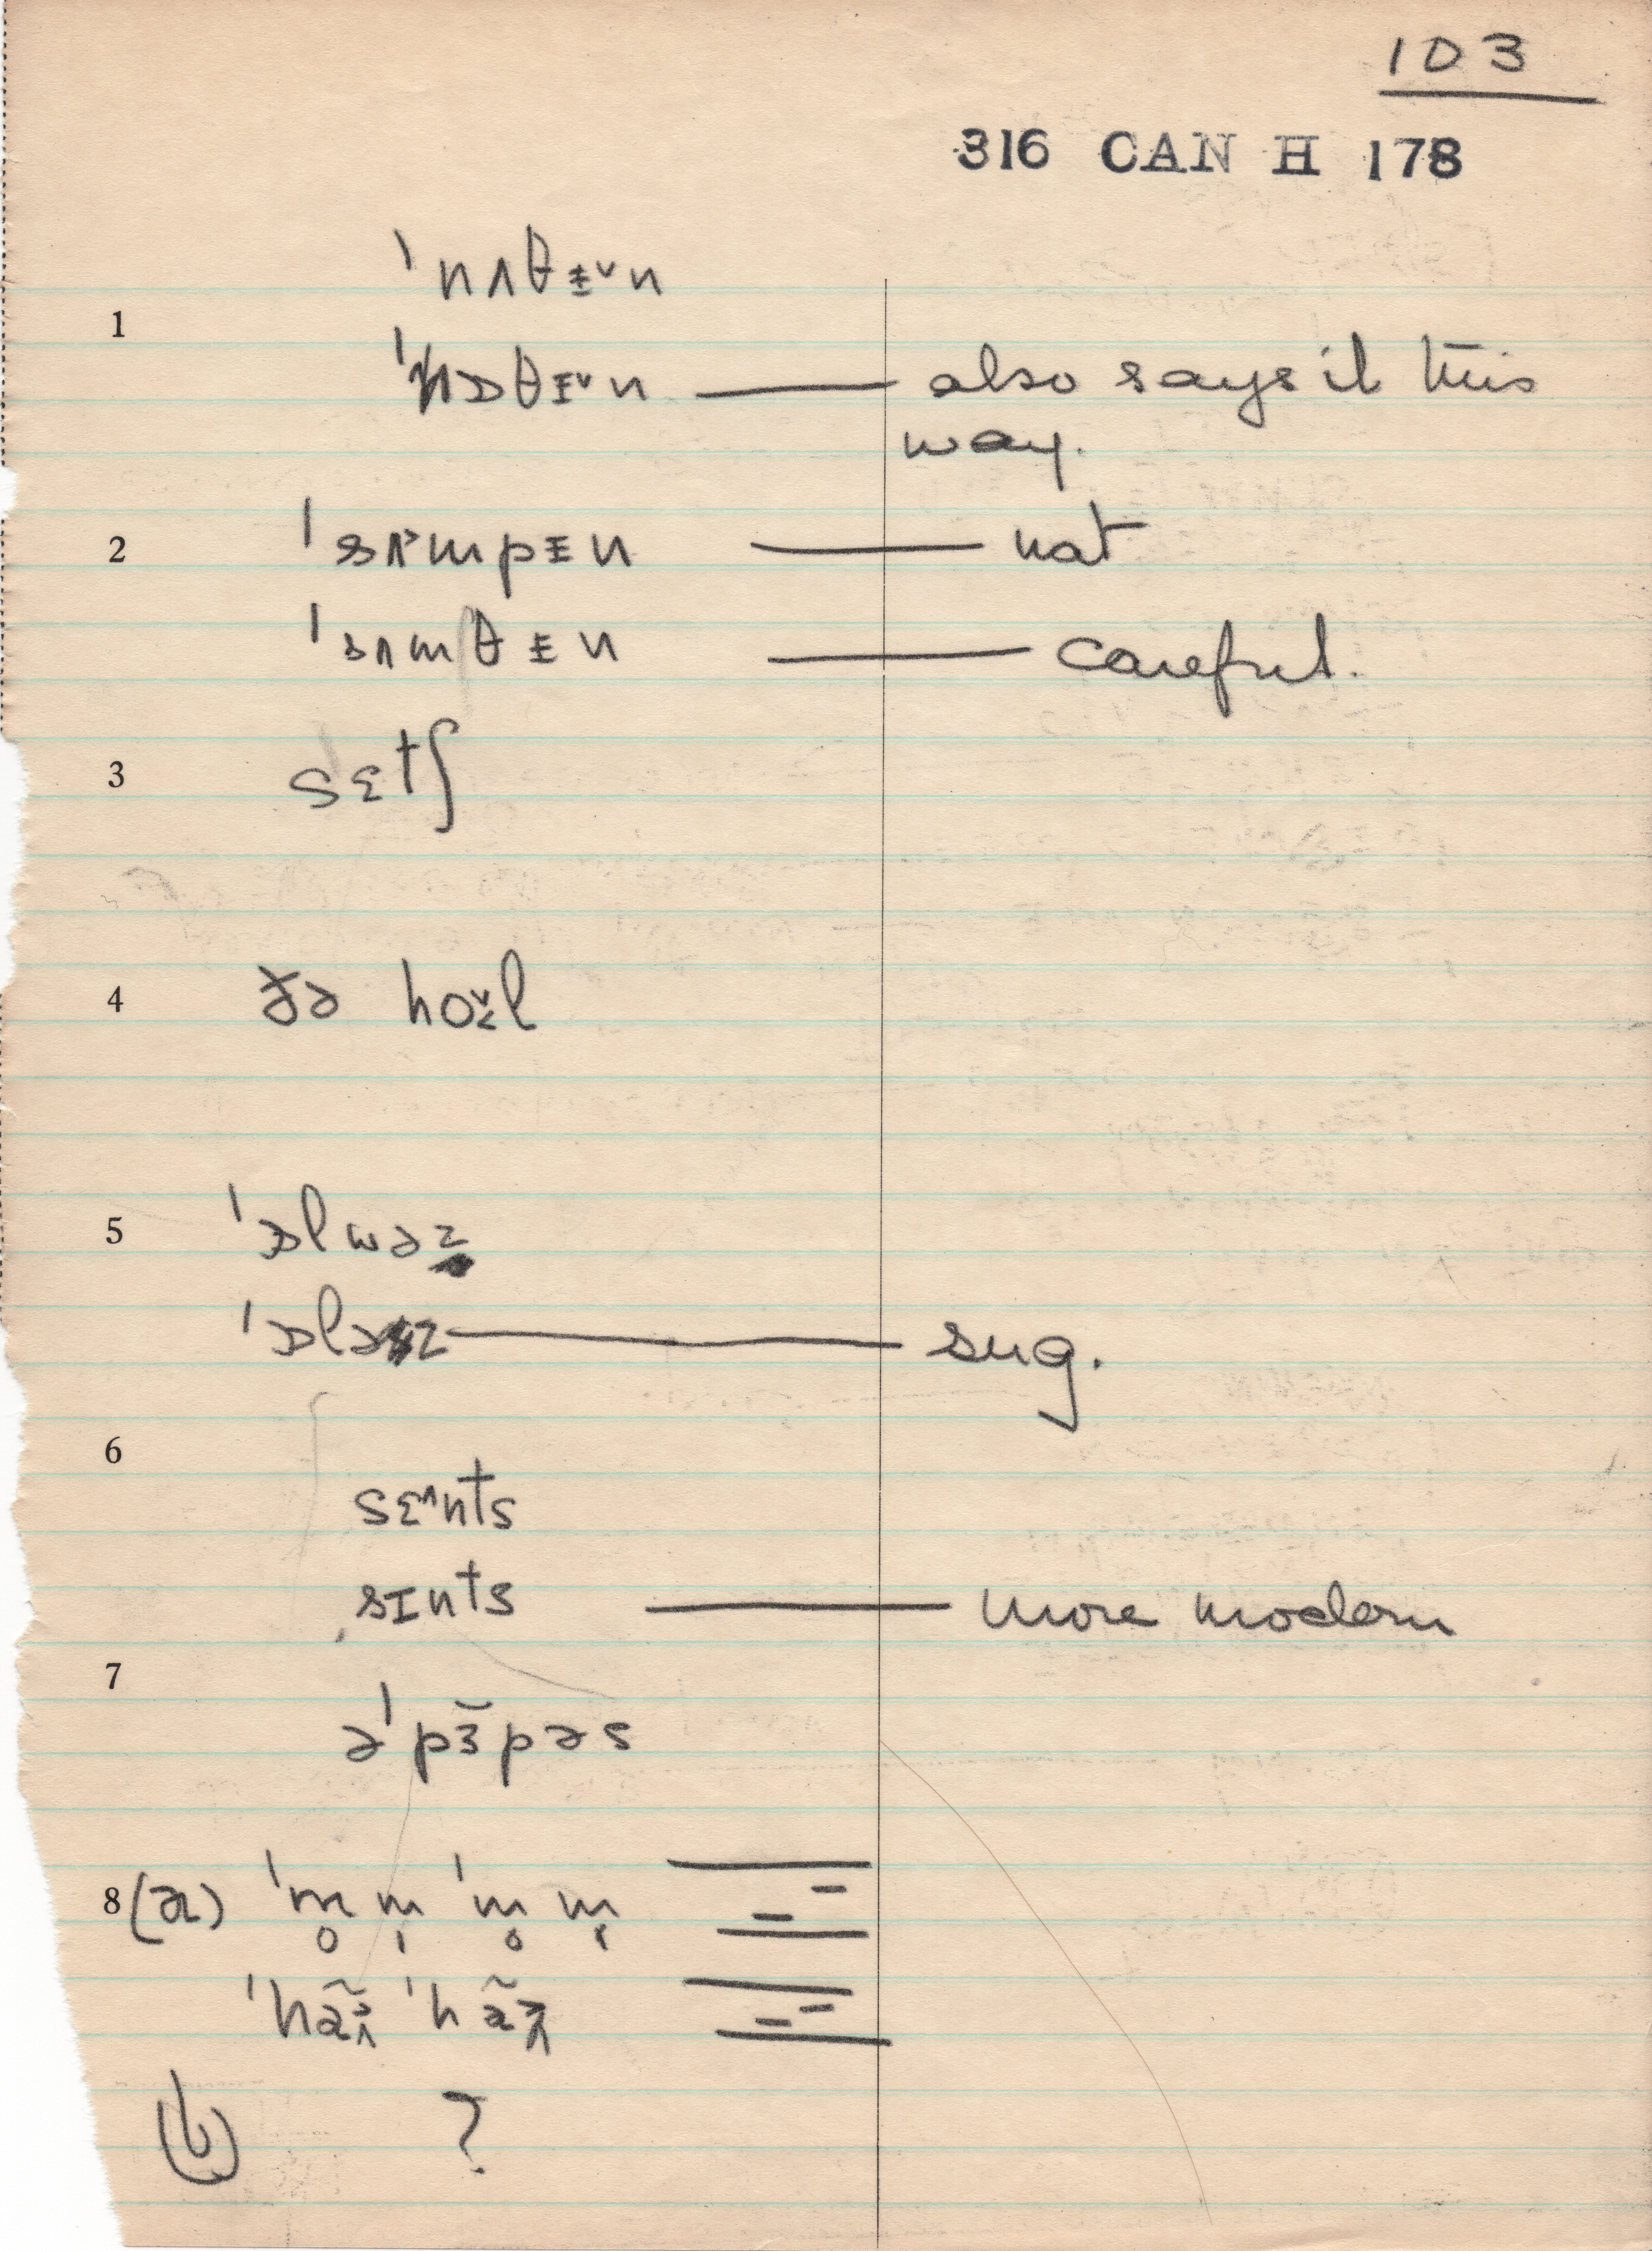 103
316 CAN H 178
ˈnʌθɪ̵˅n
1
ˈnɒθɪ̵˅n — also says it this
way.
2 ˈsʌ˃mpɪ̵n — nat
ˈsʌmθɪ̵n — careful.
3 sɛtʃ
4 ðə hoʊ̌l
5 ˈɒlwəz
ˈɒləz — sug.
6
sɛ^nts
sɪnts — more modern
7
əˈpɜ̆pəs
8 (a) ˈm̥m̩ ˈm̥m̩
ˈhã ˈhã
(b) ?